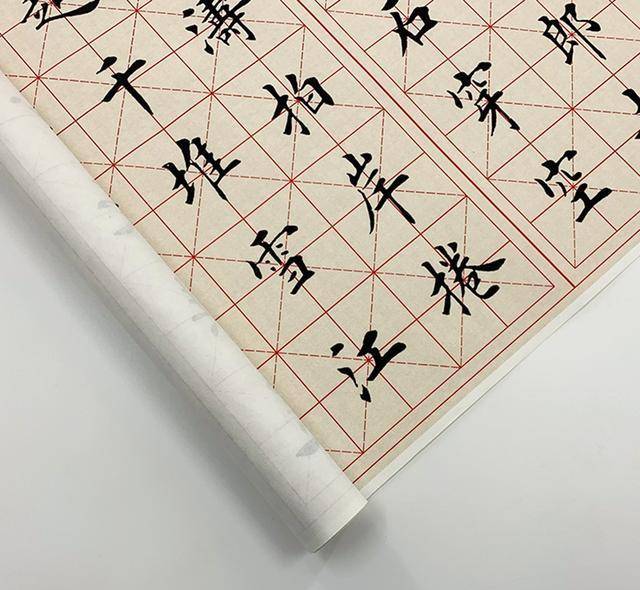 郎
石穿空
濤拍岸捲
起千堆雪江